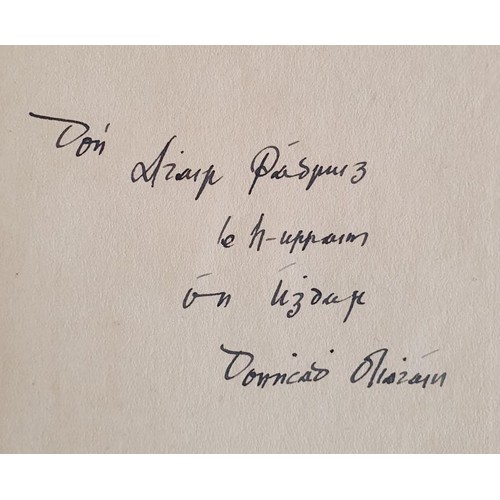 Dón Atair Pádruig
le h-urraim
ón Úgdar
Donncad Ó Liatáin